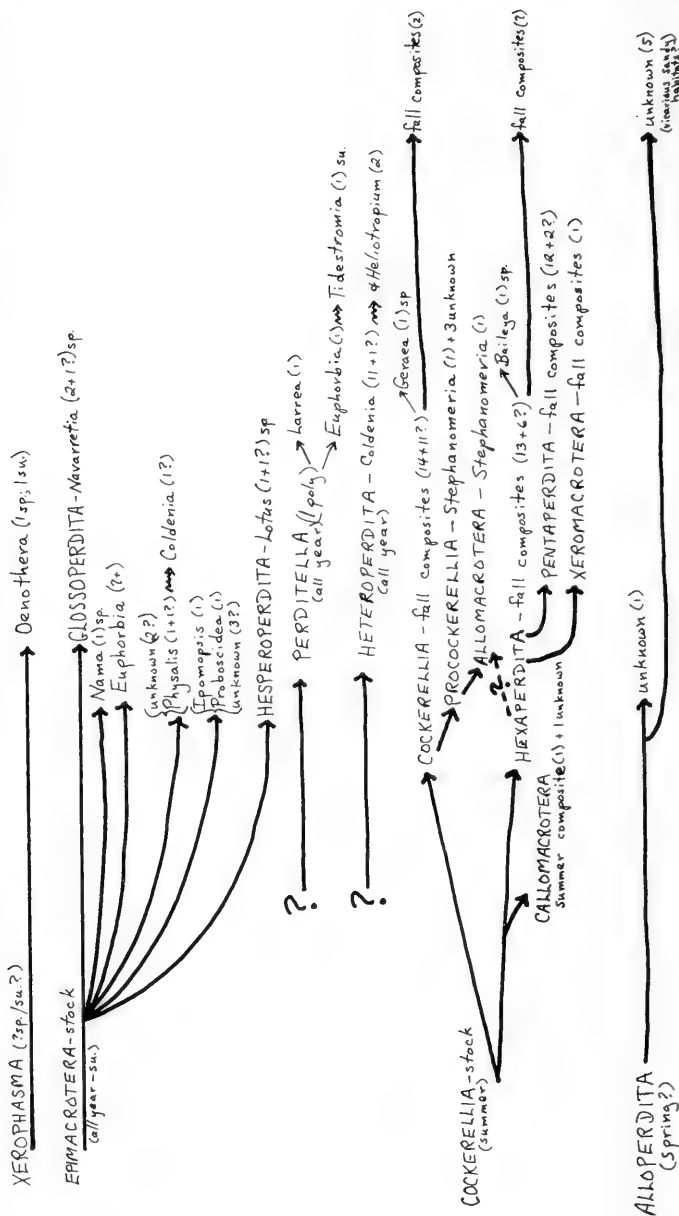 XEROPHASMA (?sp./su.?)
Oenothera (1sp; 1su.)
EPIMACROTERA-stock
(all year-su.)
GLOSSOPERDITA-Navarretia (2+1?)sp.
Nama (1)sp.
Euphorbia (2+)
{unknown (2?)
{Physalis (1+1?) Coldenia (1?)
{Ipomopsis (1)
{Proboscidea (1)
{unknown (3?)
HESPEROPERDITA-Lotus (1+1?)sp
? PERDITELLA (1 poly) Larrea (1)
(all year)
Euphorbia (1) Tidestromia (1) su.
? HETEROPERDITA-Coldenia (11+1?) &Heliotropium (2)
(all year)
COCKERELLIA-stock
(summer)
COCKERELLIA - fall composites (14+11?) Geraea (1)sp fall composites (2)
PROCOCKERELLIA-Stephanomeria (1)+3unknown
ALLOMACROTERA - Stephanomeria (1)
--?--
HEXAPERDITA - fall composites (13+6?) Baileya (1)sp. fall composites (?)
CALLOMACROTERA
summer composite(1)+1unknown
PENTAPERDITA-fall composites (12+2?)
XEROMACROTERA-fall composites (1)
ALLOPERDITA
(spring?)
unknown (1)
unknown (5)
(vicarious sandy
habitats?)